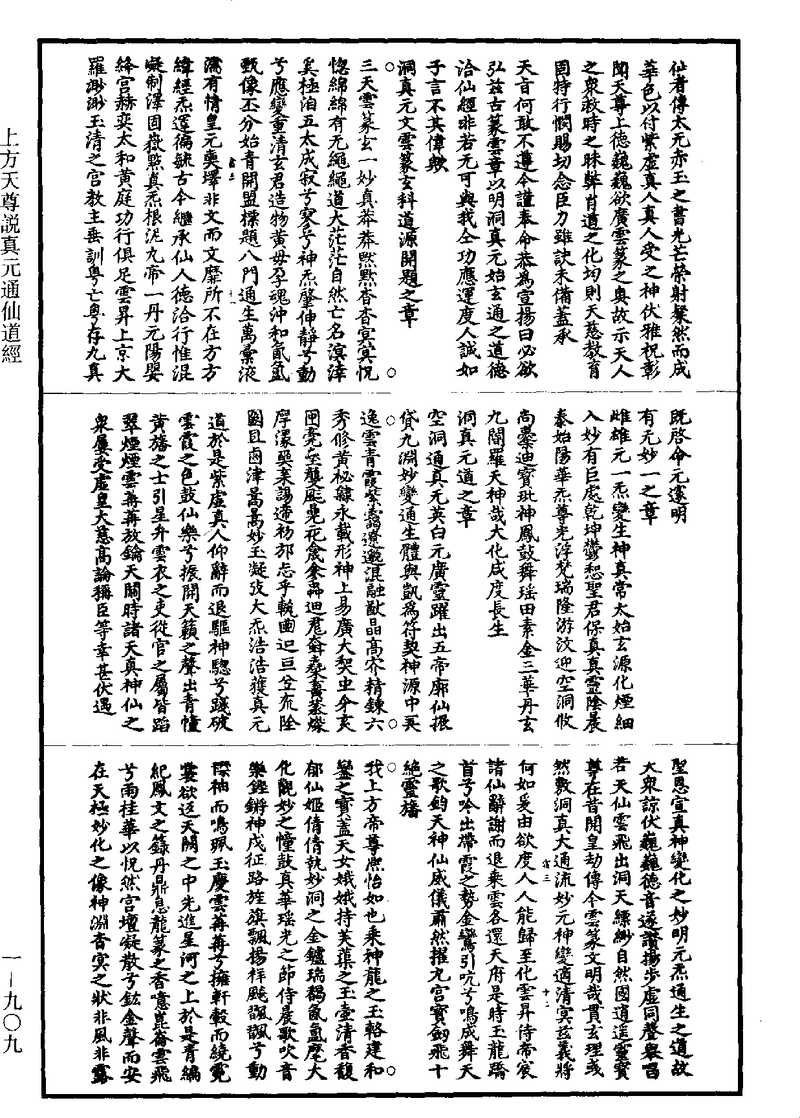 仙者傳太元赤玉之書光芒榮射粲然而成
華色以付紫虛真人真人受之神伏雅祝彰
聞天尊上德巍巍欲廣雲篆之奧故示天人
之眾救時之昧弊肖道之化均則天慈教育
固特行憫賜切念臣力雖訣未備蓋承
天旨何敢不遵今謹奉命恭為宣揚曰必欲
弘茲古篆雲章以明洞真元始玄通之道德
洽仙經非若无可與我仝功應運度人誠如
子言不其偉歟
洞真元文雲篆玄科道源開題之章
三天雲篆玄一妙真莽莽默默杳杳冥冥恍
惚綿綿有无繩繩道大茫茫自然亡名溟涬
奚極洎五太成寂兮寥乎神炁肇伸靜兮動
兮應變重清玄君造物黃母孕魂沖和氤氳
甄像丕分始青開盟標題八門通生萬彙液
濡有情皇元奭墿非文而文靡所不在方方
緯經炁運徧毓古今繼承仙人德洽行惟混
凝制澤固嶽真炁根泥九帝一丹元陽嬰
絳宮赫奕太和黃庭功行俱足雲昇上京大
羅渺渺玉清之宮教主垂訓粵亡粵存九真
既啓命元遂明
有元妙一之章
雌雄元一炁變生神真常太始玄源化煙細
入妙有巨處乾坤鬱惚聖君保真真靈陰晨
泰始陽華炁尊光浮梵瑞隆游汶迎空洞攸
尚藁迪寶玭神鳳鼓舞瑶田素金三華丹玄
九闇羅天神哉大化咸度長生
洞真元道之章
空洞通真元英白元廣靈躍出五帝廓仙振
貸九淵妙變通生體與凱為符契神源中天
逸雲青霞紫靄遼邈混融猷晶高宗精鍊六
秀修黃秘籙永載形神上易廣大契虫身亥
摩濛
浩浩獲真元
道於是紫虛真人仰辭而退驅神騘兮踐破
雲霞之色鼓仙樂兮振開天籟之聲出青幢
黃旛之士引星弁雲衣之吏從官之屬皆蹈
翠煙煙雲冉冉放鑰天關時諸天真神仙之
眾屢受虛皇大慈高論稱臣等幸甚伏遇
聖恩宣真神變化之妙明元炁通生之道故
大眾諒伏巍巍德音遂讚揚步虛同聲舉唱
若天仙雲飛出洞天縹緲自然國道遥靈寶
尊在昔開皇劫傳今雲篆文明哉貫玄理或
然數洞真大通流妙元神變適清冥玆義將
何如爰由欲度人人能歸至化雲昇侍帝宸
諸仙辭謝而退乘雲各還天府是時玉龍躋
首兮吟出帶霞之勢金鸞引吭兮鳴成舞天
之歌鈞天神仙威儀肅然擢九宮寶劒飛十
絶靈旛
我上方帝尊熙怡如也乘神龍之玉輅建和
鑾之寶蓋天女娥娥持芙蕖之玉臺清香馥
郁仙姬倩倩執妙洞之金鑪瑞靄氤氳麾大
化觀妙之幢鼓真華瑶光之節侍晨歌吹音
樂鏗鏘神戍征路旌旗飄揚祥飈飄飄兮動
襟袖而鳴珮玉慶雲冉冉兮擁軒轂而繞霓
裳欲近天闕之中先進星河之上於是青編
紀鳳文之籙丹鼎息龍篆之香噫崑崙雲飛
兮雨桂華以恍然宮壇凝散兮鈜金聲而安
在天極妙化之像神淵杳冥之狀非風非露
上方天尊説真元通仙道經
一—九〇九